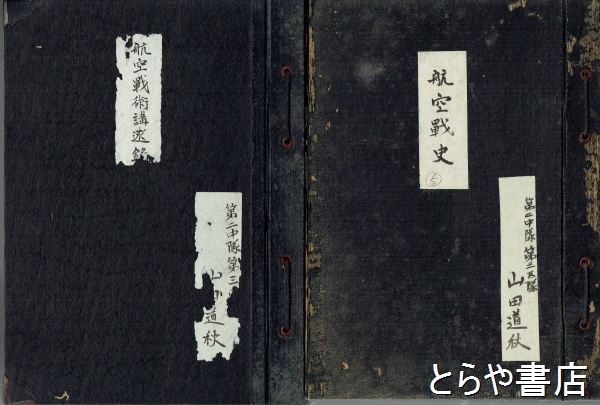 航空戰術講述録
第二中隊第三
山
道秋
航空戰史
第二中隊第三区隊
山田道秋
とらや書店